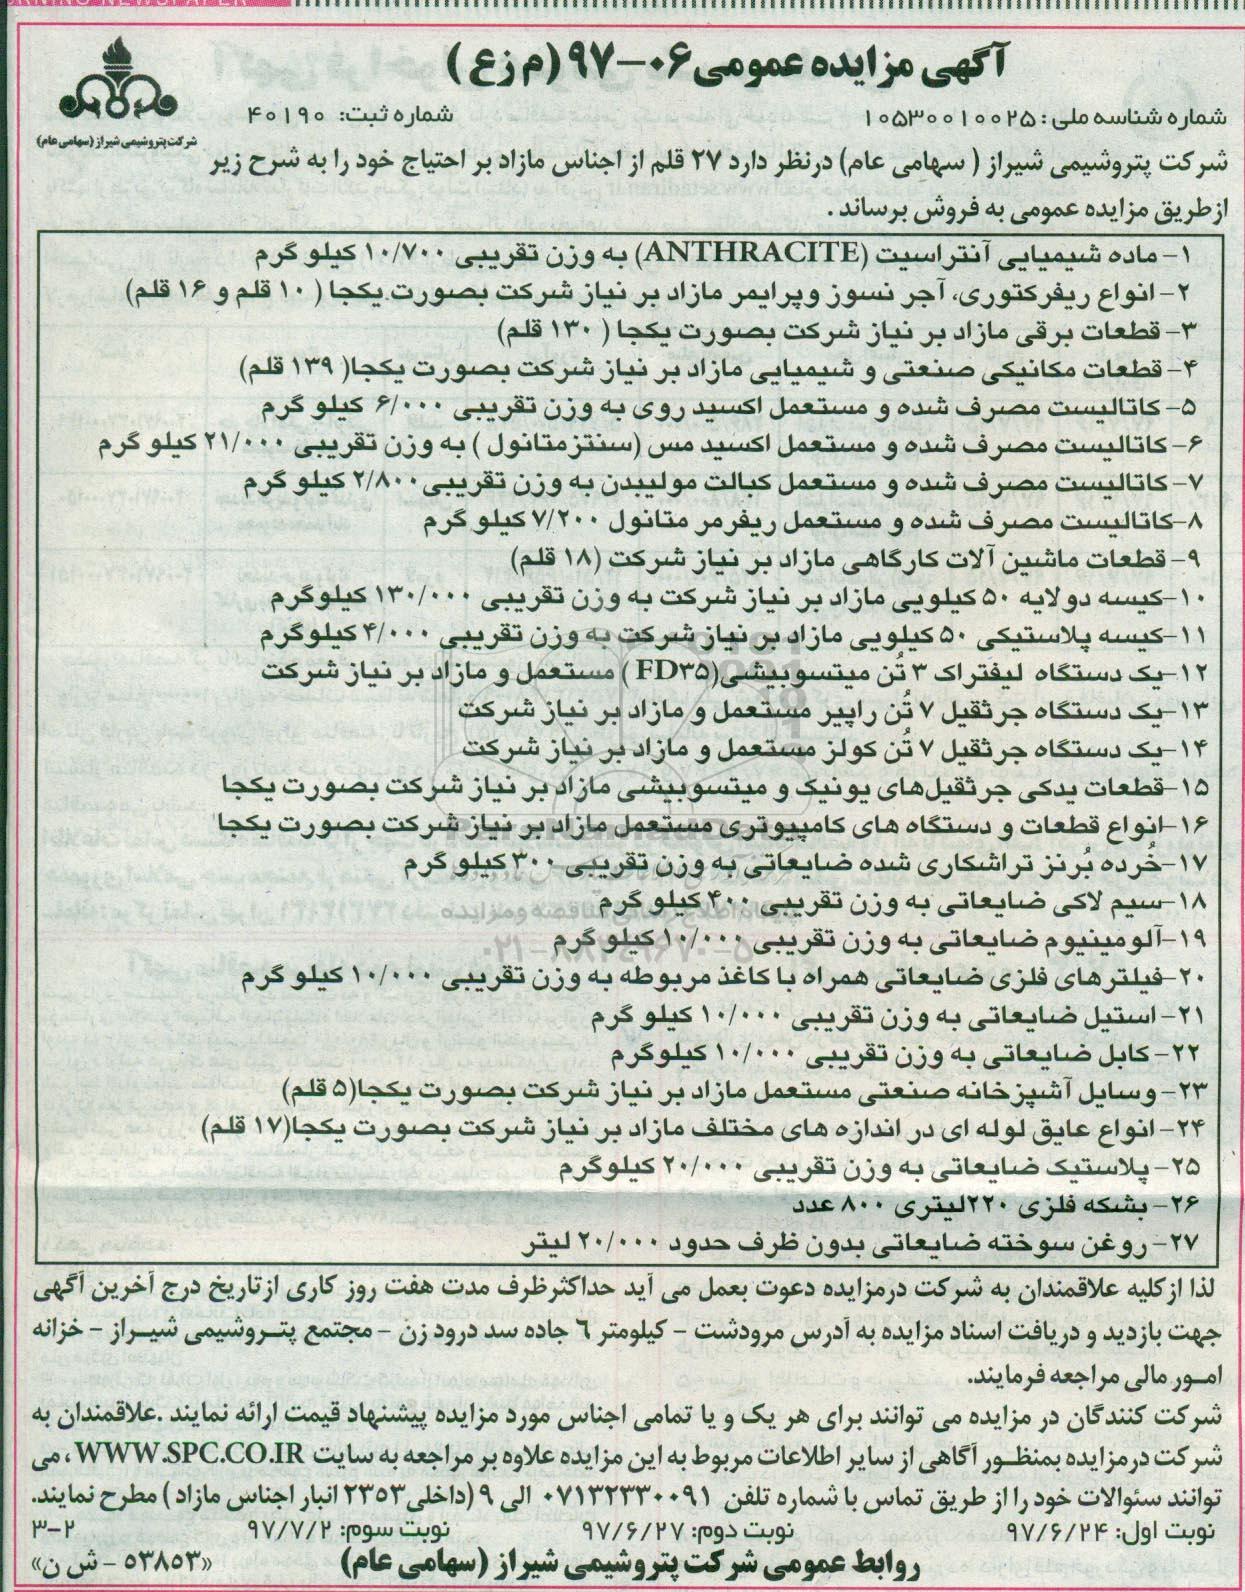 آگهی مزایده عمومی ۰۶-۹۷ (م زع)
شماره شناسه ملی: ۱۰۵۳۰۰۱۰۰۲۵
شماره ثبت: ۴۰۱۹۰
شرکت پتروشیمی شیراز (سهامی عام)
شرکت پتروشیمی شیراز ( سهامی عام) درنظر دارد ۲۷ قلم از اجناس مازاد بر احتیاج خود را به شرح زیر
ازطریق مزایده عمومی به فروش برساند.
۱- ماده شیمیایی آنتراسیت (ANTHRACITE) به وزن تقریبی ۱۰/۷۰۰ کیلو گرم
۲- انواع ریفرکتوری، آجر نسوز وپرایمر مازاد بر نیاز شرکت بصورت یکجا ( ۱۰ قلم و ۱۶ قلم)
۳- قطعات برقی مازاد بر نیاز شرکت بصورت یکجا ( ۱۳۰ قلم)
۴- قطعات مکانیکی صنعتی و شیمیایی مازاد بر نیاز شرکت بصورت یکجا( ۱۳۹ قلم)
۵- کاتالیست مصرف شده و مستعمل اکسید روی به وزن تقریبی ۶/۰۰۰ کیلو گرم
۶- کاتالیست مصرف شده و مستعمل اکسید مس (سنتزمتانول ) به وزن تقریبی ۲۱/۰۰۰ کیلو گرم
۷- کاتالیست مصرف شده و مستعمل کبالت مولیبدن به وزن تقریبی۲/۸۰۰ کیلو گرم
۸-کاتالیست مصرف شده و مستعمل ریفرمر متانول ۷/۲۰۰ کیلو گرم
۹- قطعات ماشین آلات کارگاهی مازاد بر نیاز شرکت (۱۸ قلم)
۱۰-کیسه دولایه ۵۰ کیلویی مازاد بر نیاز شرکت به وزن تقریبی ۱۳۰/۰۰۰ کیلوگرم
۱۱-کیسه پلاستیکی ۵۰ کیلویی مازاد بر نیاز شرکت به وزن تقریبی ۴/۰۰۰ کیلوگرم
۱۲-یک دستگاه لیفتراک ۳ تُن میتسوبیشی(FD۳۵ ) مستعمل و مازاد بر نیاز شرکت
۱۳-یک دستگاه جرثقیل ۷ تُن راپیر مستعمل و مازاد بر نیاز شرکت
۱۴-یک دستگاه جرثقیل ۷ تُن کولز مستعمل و مازاد بر نیاز شرکت
۱۵-قطعات یدکی جرثقیل‌های یونیک و میتسوبیشی مازاد بر نیاز شرکت بصورت یکجا
۱۶-انواع قطعات و دستگاه های کامپیوتری مستعمل مازاد بر نیاز شرکت بصورت یکجا
۱۷-خُرده بُرنز تراشکاری شده ضایعاتی به وزن تقریبی ۳۰۰ کیلو گرم
۱۸-سیم لاکی ضایعاتی به وزن تقریبی ۴۰۰ کیلو گرم
۱۹-آلومینیوم ضایعاتی به وزن تقریبی ۱۰/۰۰۰ کیلو گرم
۲۰-فیلترهای فلزی ضایعاتی همراه با کاغذ مربوطه به وزن تقریبی ۱۰/۰۰۰ کیلو گرم
۲۱- استیل ضایعاتی به وزن تقریبی ۱۰/۰۰۰ کیلو گرم
۲۲- کابل ضایعاتی به وزن تقریبی ۱۰/۰۰۰ کیلوگرم
۲۳- وسایل آشپزخانه صنعتی مستعمل مازاد بر نیاز شرکت بصورت یکجا(۵ قلم)
۲۴- انواع عایق لوله ای در اندازه های مختلف مازاد بر نیاز شرکت بصورت یکجا(۱۷ قلم)
۲۵- پلاستیک ضایعاتی به وزن تقریبی ۲۰/۰۰۰ کیلوگرم
۲۶- بشکه فلزی ۲۲۰لیتری ۸۰۰ عدد
۲۷- روغن سوخته ضایعاتی بدون ظرف حدود ۲۰/۰۰۰ لیتر
لذا ازکلیه علاقمندان به شرکت درمزایده دعوت بعمل می آید حداکثرظرف مدت هفت روز کاری ازتاریخ درج آخرین آگهی
جهت بازدید و دریافت اسناد مزایده به آدرس مرودشت - کیلومتر ۶ جاده سد درودزن - مجتمع پتروشیمی شیراز - خزانه
امور مالی مراجعه فرمایند.
شرکت کنندگان در مزایده می توانند برای هر یک و یا تمامی اجناس مورد مزایده پیشنهاد قیمت ارائه نمایند .علاقمندان به
شرکت درمزایده بمنظور آگاهی از سایر اطلاعات مربوط به این مزایده علاوه بر مراجعه به سایت WWW.SPC.CO.IR، می
توانند سئوالات خود را از طریق تماس با شماره تلفن ۰۷۱۳۲۳۳۰۰۹۱ الی ۹ (داخلی۲۳۵۳ انبار اجناس مازاد ) مطرح نمایند.
نوبت اول: ۹۷/۶/۲۴ نوبت دوم: ۹۷/۶/۲۷ نوبت سوم: ۹۷/۷/۲ ۳-۲
روابط عمومی شرکت پتروشیمی شیراز (سهامی عام) «۵۳۸۵۳ - ش ن»
۰۲۱-۸۸۳۴۹۶۷۰-۵